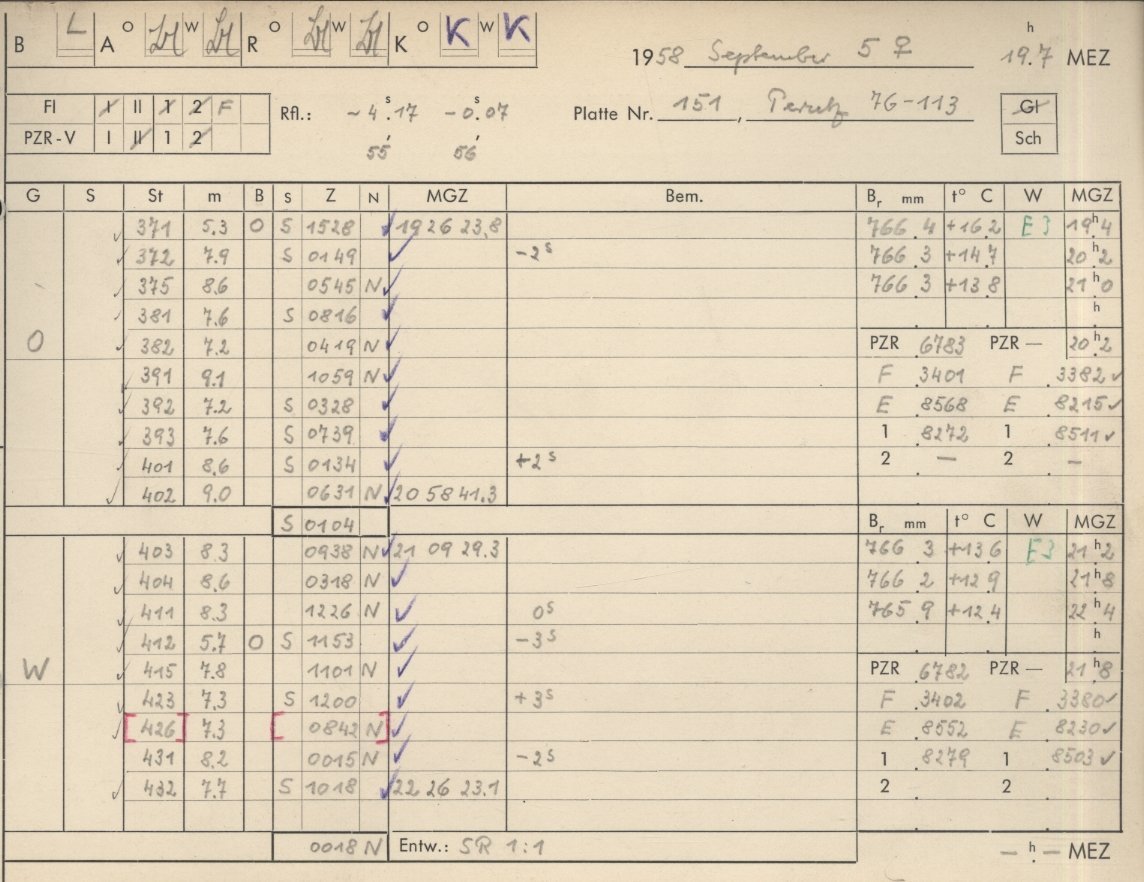 B L A O W R O W K O K W K h
1958 September 5 ♀ 19.7 MEZ
FI I II 1 2 F Rfl.: ~4.ˢ17 -0.ˢ07 Platte Nr. 151, Perutz 76-113 GI
PZR-V I II 1 2 55' 56' Sch
G S St m B S Z N MGZ Bem. Bᵣ mm t° C W MGZ
371 5.3 O S 1528 19 26 23.8 766.4 +16.2 E3 19ʰ.4
372 7.9 S 0149 -2ˢ 766.3 +14.7 20ʰ.2
375 8.6 0545 N 766.3 +13.8 21ʰ.0
381 7.6 S 0816 h
O 382 7.2 0419 N PZR 6783 PZR — 20ʰ.2
391 9.1 1059 N F .3401 F .3382 ✓
392 7.2 S 0328 E .8568 E .8215 ✓
393 7.6 S 0739 1 .8272 1 .8511 ✓
401 8.6 S 0134 +2ˢ 2 . — 2 . —
402 9.0 0631 N 20 58 41.3
S 0104 Bᵣ mm t° C W MGZ
403 8.3 0938 N 21 09 29.3 766.3 +13.6 E3 21ʰ.2
404 8.6 0318 N 766.2 +12.9 21ʰ.8
411 8.3 1226 N 0ˢ 765.9 +12.4 22ʰ.4
412 5.7 O S 1153 -3ˢ h
W 415 7.8 1101 N PZR 6782 PZR — 21ʰ.8
423 7.3 S 1200 +3ˢ F .3402 F .3380 ✓
[426] 7.3 [0842 N] E .8552 E .8230 ✓
431 8.2 0015 N -2ˢ 1 .8279 1 .8503 ✓
432 7.7 S 1018 22 26 23.1 2 . 2 .
0018 N Entw.: SR 1:1 — ʰ. — MEZ